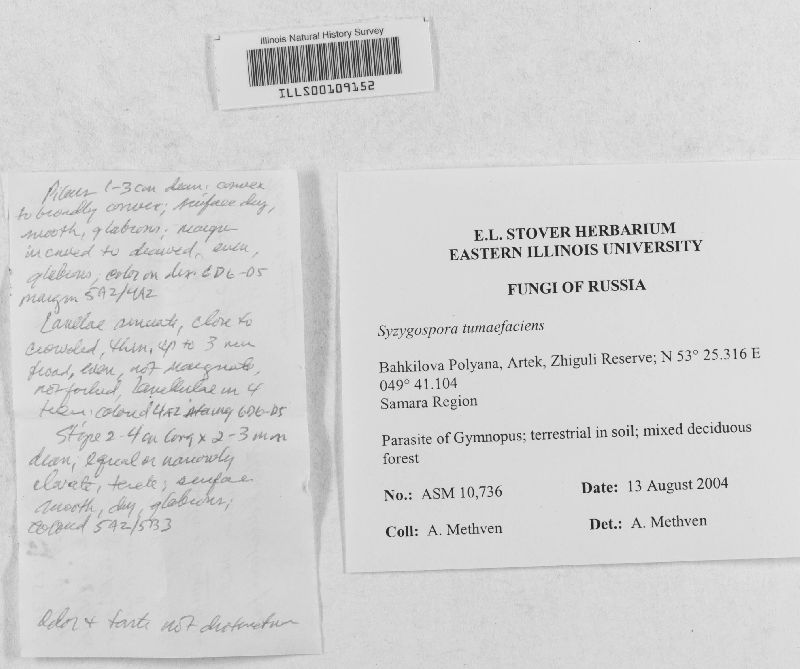 Illinois Natural History Survey
ILLS00109152
Pileus 1-3 cm diam; convex
to broadly convex; surface dry,
smooth, glabrous; margin
incurved to decurved, even,
glabrous; color on disc 6D6-D5
margin 5A2/4A2
Lamellae sinuate, close to
crowded, thin, up to 3 mm
broad, even, not marginate,
not forked, lamellulae in 4
tiers; colored 4A2 staining 6D6-D5
Stipe 2-4 cm long x 2-3 mm
diam; equal or narrowly
clavate, terete; surface
smooth, dry, glabrous;
colored 5A2/5B3
Odor & taste not distinctive
E.L. STOVER HERBARIUM
EASTERN ILLINOIS UNIVERSITY
FUNGI OF RUSSIA
Syzygospora tumaefaciens
Bahkilova Polyana, Artek, Zhiguli Reserve; N 53° 25.316 E
049° 41.104
Samara Region
Parasite of Gymnopus; terrestrial in soil; mixed deciduous
forest
No.: ASM 10,736 Date: 13 August 2004
Coll: A. Methven Det.: A. Methven